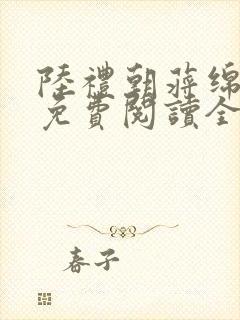 陸禮朝蔣綿
免費閱讀全
春子